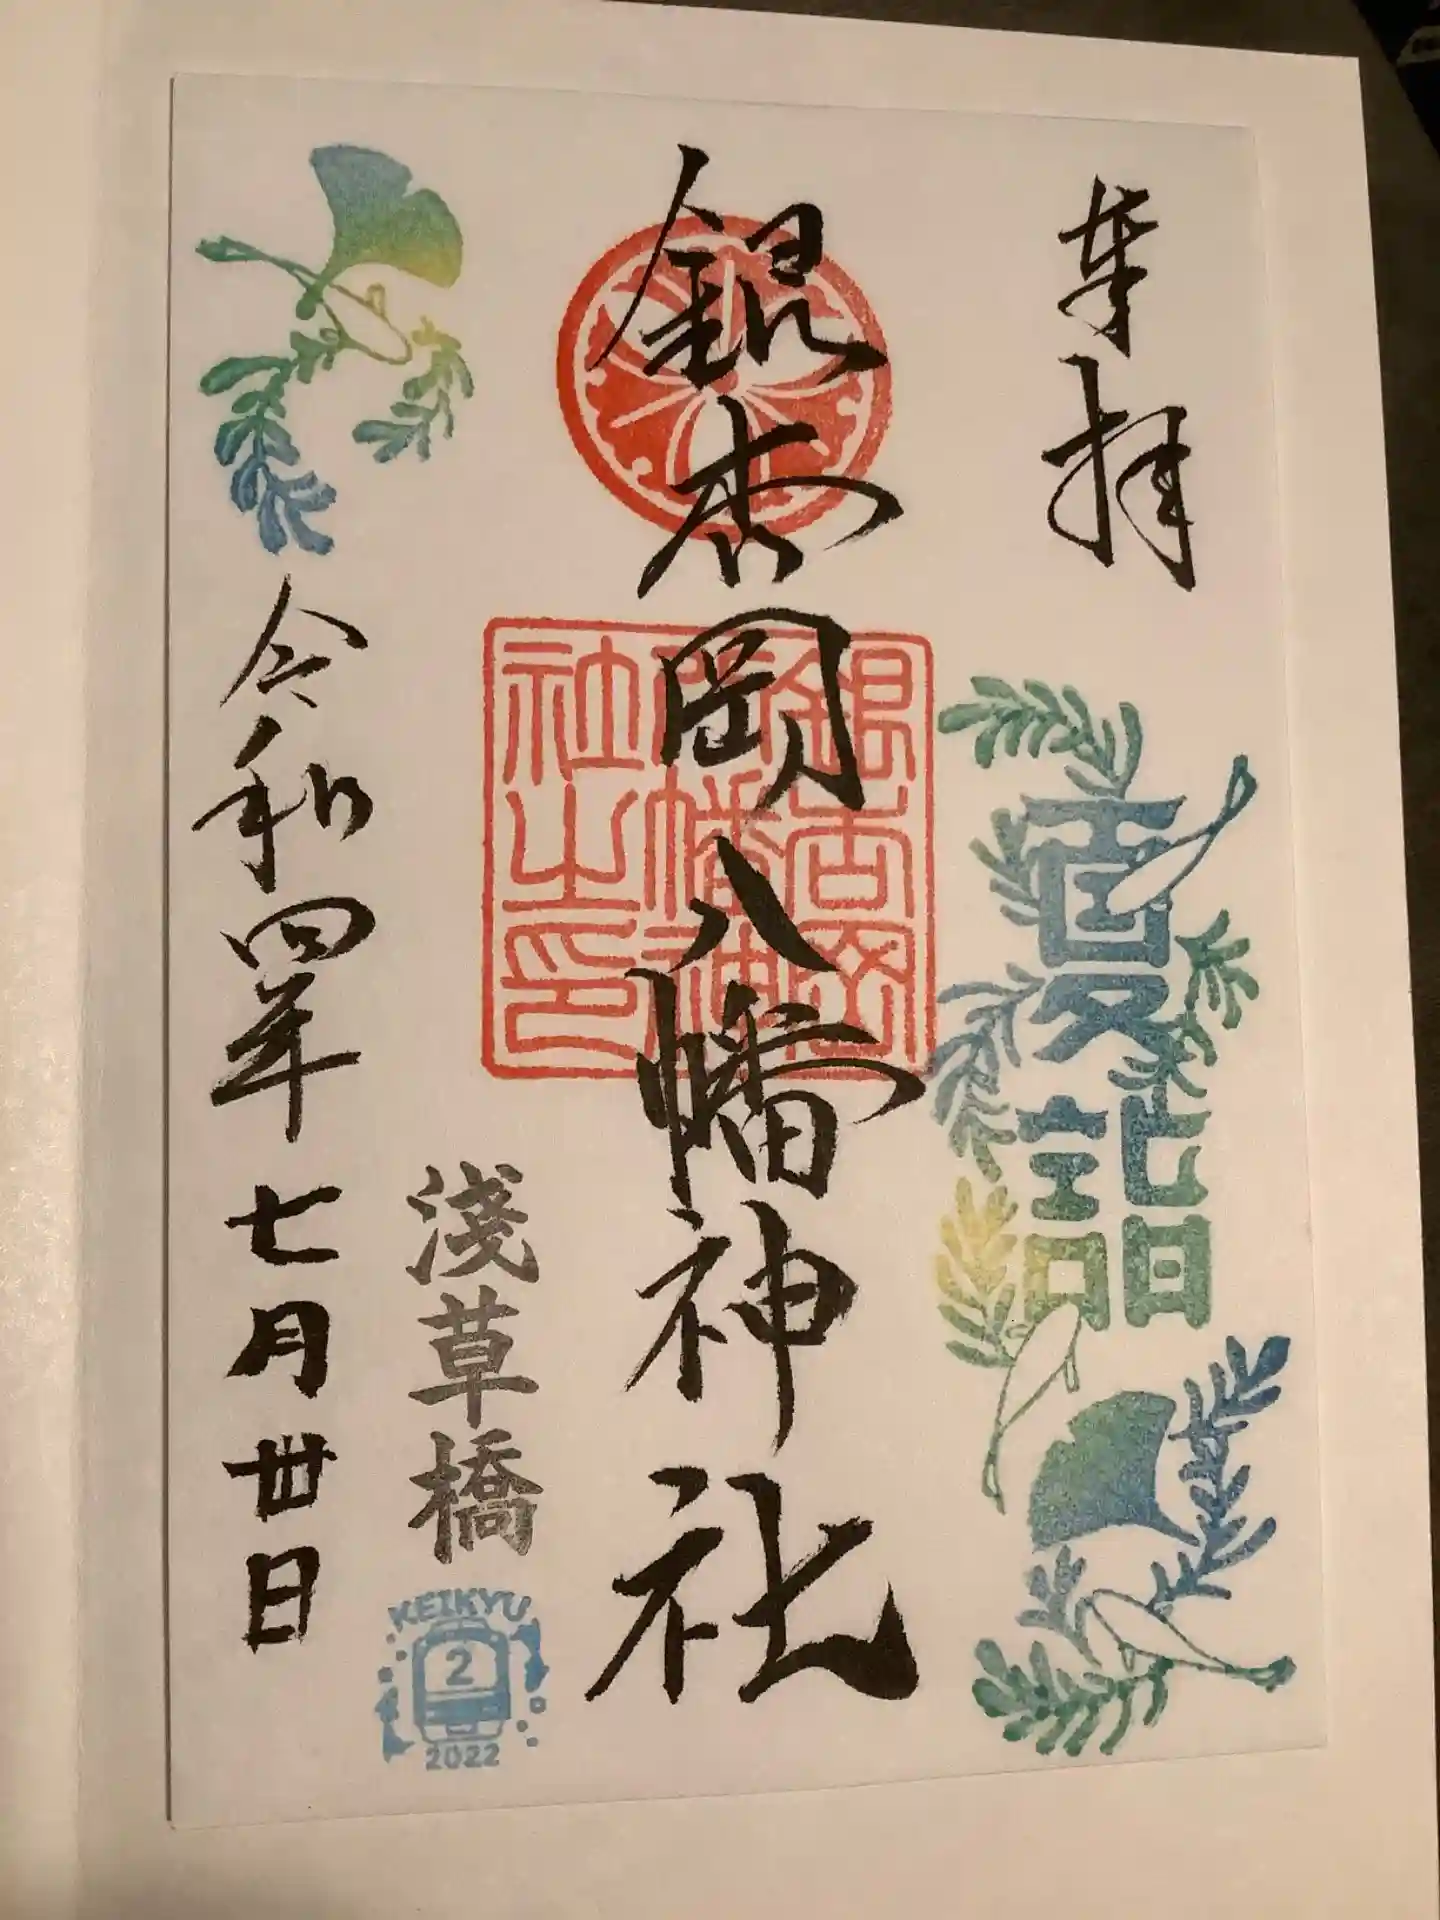 奉拝
夏詣
銀杏岡八幡神社
銀杏岡八幡神社之印
淺草橋
KEIKYU
2
2022
令和四年七月卅日